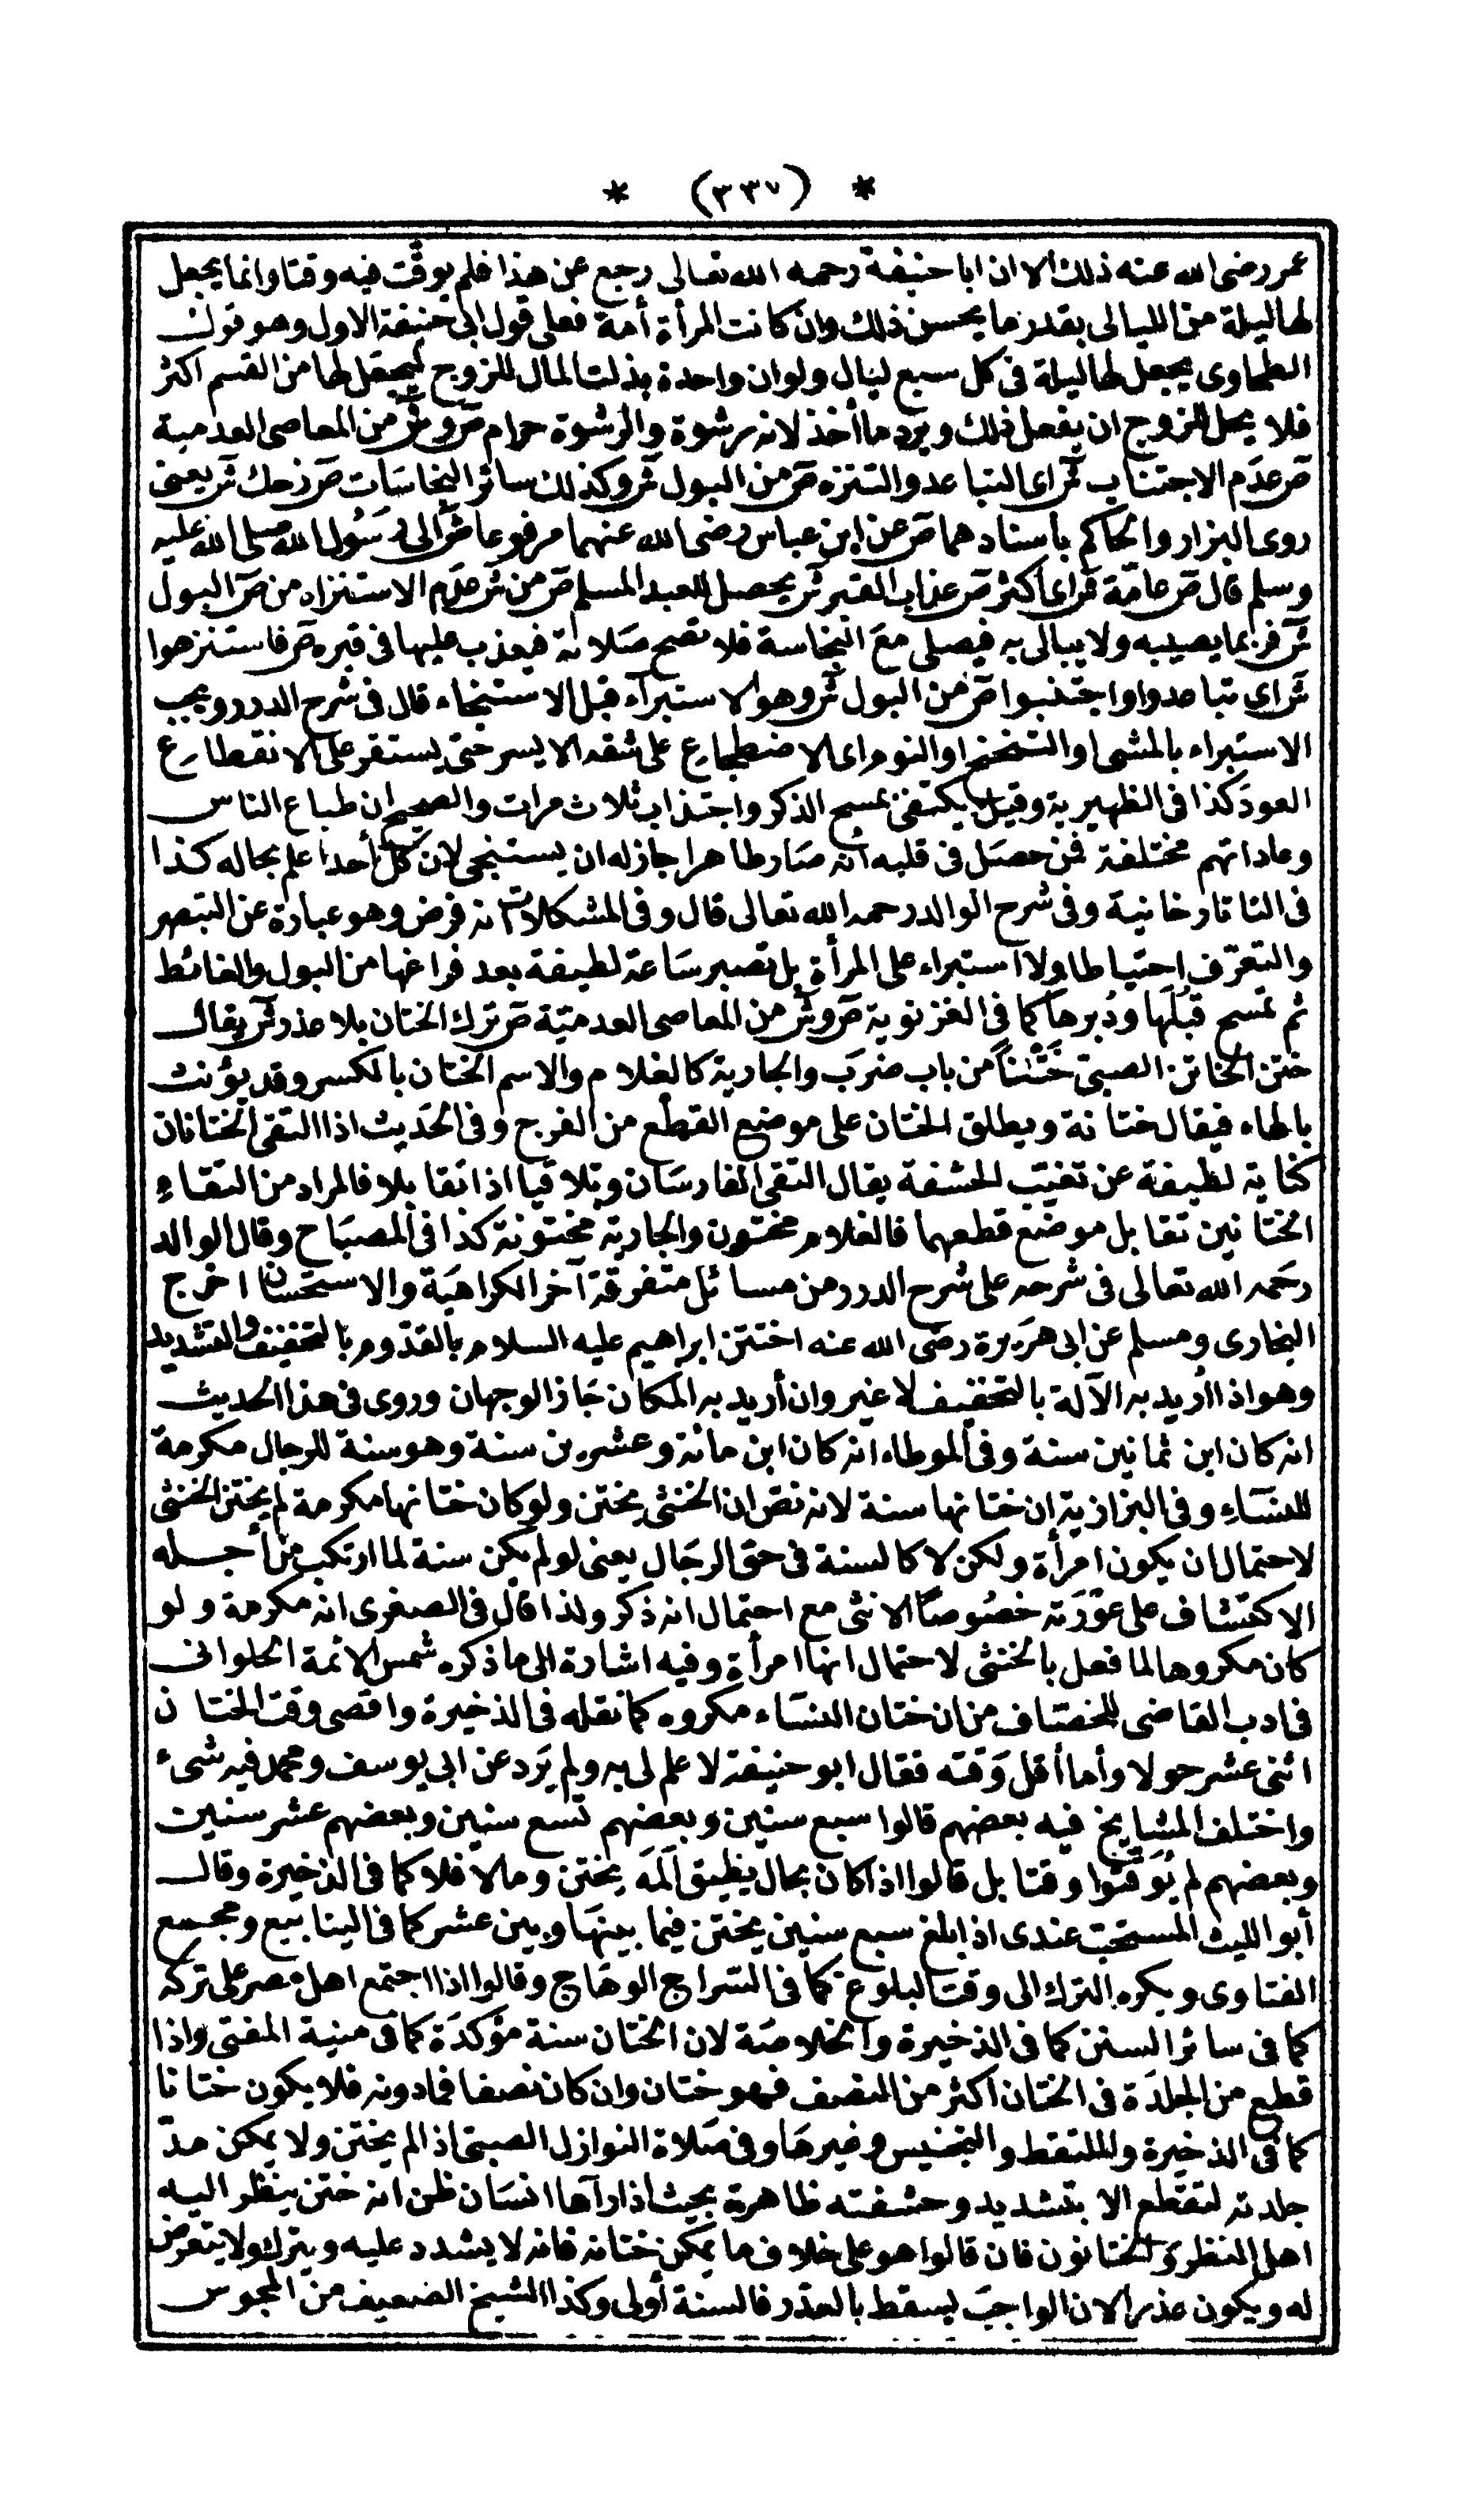 * (٣٣٧) *
عمر رضى الله عنه ذلك الا ان ابا حنيفة رحمه الله تعالى رجع عن هذا فلم يوقت فيه وقتا وانما يجعل
لها ليلة من الليالى بقدر ما يحسن ذلك وان كانت المرأة أمة فعلى قول ابى حنيفة الاول وهو قول
الطحاوى يجعل لها ليلة فى كل سبع ليال ولو ان واحدة بذلت المال للزوج ليجعل لها من القسم اكثر
فلا يحل للزوج ان يفعل ذلك ويرد ما أخذ لانه رشوة والرشوة حرام ص و ش من المعاصى العدمية
ص عدم الاجتناب ش اى التباعد والتنزه ص من البول ش وكذلك سائر النجاسات ص زحك ش يعنى
روى البزار والحاكم باسنادهما ص عن ابن عباس رضى الله عنهما مرفوعا ش الى رسول الله صلى الله عليه
وسلم قال ص عامة ش اى أكثر ص عذاب القبر ش يحصل للعبد المسلم ص من ش عدم الاستنزاه من ص البول
ش فربما يصيبه ولا يبالى به فيصلى مع النجاسة فلا تصح صلاته فيعذب عليها فى قبره ص فاستنزهوا
ش اى تباعدوا واجتنبوا ص من البول ش وهو الاستبراء قبل الاستنجاء قال فى شرح الدرر ويجب
الاستبراء بالمشى او التنحنح او النوم اى الاضطجاع على شقه الايسر حتى يستقر على الانقطاع
العود كذا فى الظهيرية وقيل يكتفى بمسح الذكر واجتذاب ثلاث مرات والصحيح ان طباع الناس
وعاداتهم مختلفة فمن حصل فى قلبه انه صار طاهرا جاز له ان يستنجى لان كل أحد اعلم بحاله كذا
فى التاتارخانية وفى شرح الوالد رحمه الله تعالى قال وفى المشكلات انه فرض وهو عبارة عن التبصر
والتعرف احتياطا ولا استبراء على المرأة بل تصبر ساعة لطيفة بعد فراغها من البول والغائط
ثم تمسح قبلها ودبرها كما فى الغزنوية ص و ش من المعاصى العدمية ص ترك الختان بلا عذر ش يقال
ختن الخاتن الصبى ختنا من باب ضرب والجارية كالغلام والاسم الختان بالكسر وقد يؤنث
بالهاء فيقال ختانة ويطلق الختان على موضع القطع من الفرج وفى الحديث اذا التقى الختانان
كناية لطيفة عن تغيب الحشفة يقال التقى الفارسان وتلاقيا اذا تقابلا فالمراد من التقاء
الختانين تقابل موضع قطعهما فالغلام مختون والجارية مختونة كذا فى المصباح وقال الوالد
رحمه الله تعالى فى شرحه على شرح الدرر من مسائل متفرقة آخر الكراهية والاستحسان اخرج
البخارى ومسلم عن ابى هريرة رضى الله عنه اختتن ابراهيم عليه السلام بالقدوم بالتخفيف والتشديد
وهو اذا أريد به الآلة بالتخفيف لا غير وان أريد به المكان جاز الوجهان وروى فى هذا الحديث
انه كان ابن ثمانين سنة وفى الموطاء انه كان ابن مائة وعشرين سنة وهو سنة للرجال مكرمة
للنساء وفى البزازية ان ختانها سنة لانه نص ان الخنثى يختن ولو كان ختانها مكرمة لم يختن الخنثى
لاحتمال ان يكون امرأة ولكن لا كالسنة فى حق الرجال يعنى لو لم يكن سنة لما ارتكب من أجله
الاكتشاف على عورته خصوصا الانثى مع احتمال انه ذكر ولذا قال فى الصغرى انه مكرمة ولو
كان مكروها لما فعل بالخنثى لاحتمال انها امرأة وفيه اشارة الى ما ذكره شمس الائمة الحلوانى
فى ادب القاضى للخصاف من ان ختان النساء مكروه كما نقله فى الذخيرة واقصى وقت الختان
اثنى عشر حولا وأما أقل وقته فقال ابو حنيفة لا علم لى به ولم يرد عن ابى يوسف ومحمد فيه شىء
واختلف المشايخ فيه بعضهم قالوا سبع سنين وبعضهم تسع سنين وبعضهم عشر سنين
وبعضهم لم يوقتوا وقتا بل قالوا اذا كان بحال يطيق ألمه يختن ومالا فلا كما فى الذخيرة وقال
أبو الليث المستحب عندى اذا بلغ سبع سنين يختن فيما بينها وبين عشر كما فى الينابيع ومجمع
الفتاوى ويكره الترك الى وقت البلوغ كما فى السراج الوهاج وقالوا اذا اجتمع اهل مصر على تركه
كما فى سائر السنن كما فى الذخيرة والخلاصة لان الختان سنة مؤكدة كما فى منية المفتى واذا
قطع من الجلدة فى الختان اكثر من النصف فهو ختان وان كان نصفا فما دونه فلا يكون ختانا
كما فى الذخيرة والملتقط والتجنيس وغيرها وفى صلاة النوازل الصبى اذا لم يختن ولا يمكن مد
جلدته لتقطع الا بتشديد وحشفته ظاهرة بحيث اذا رآها انسان ظن انه ختن ينظر اليه
اهل النظر والختانون فان قالوا هو على خلاف ما يمكن ختانه فانه لا يشدد عليه ويترك ولا يتعرض
له ويكون عذرا لان الواجب يسقط بالعذر فالسنة أولى وكذا الشيخ الضعيف من المجوس